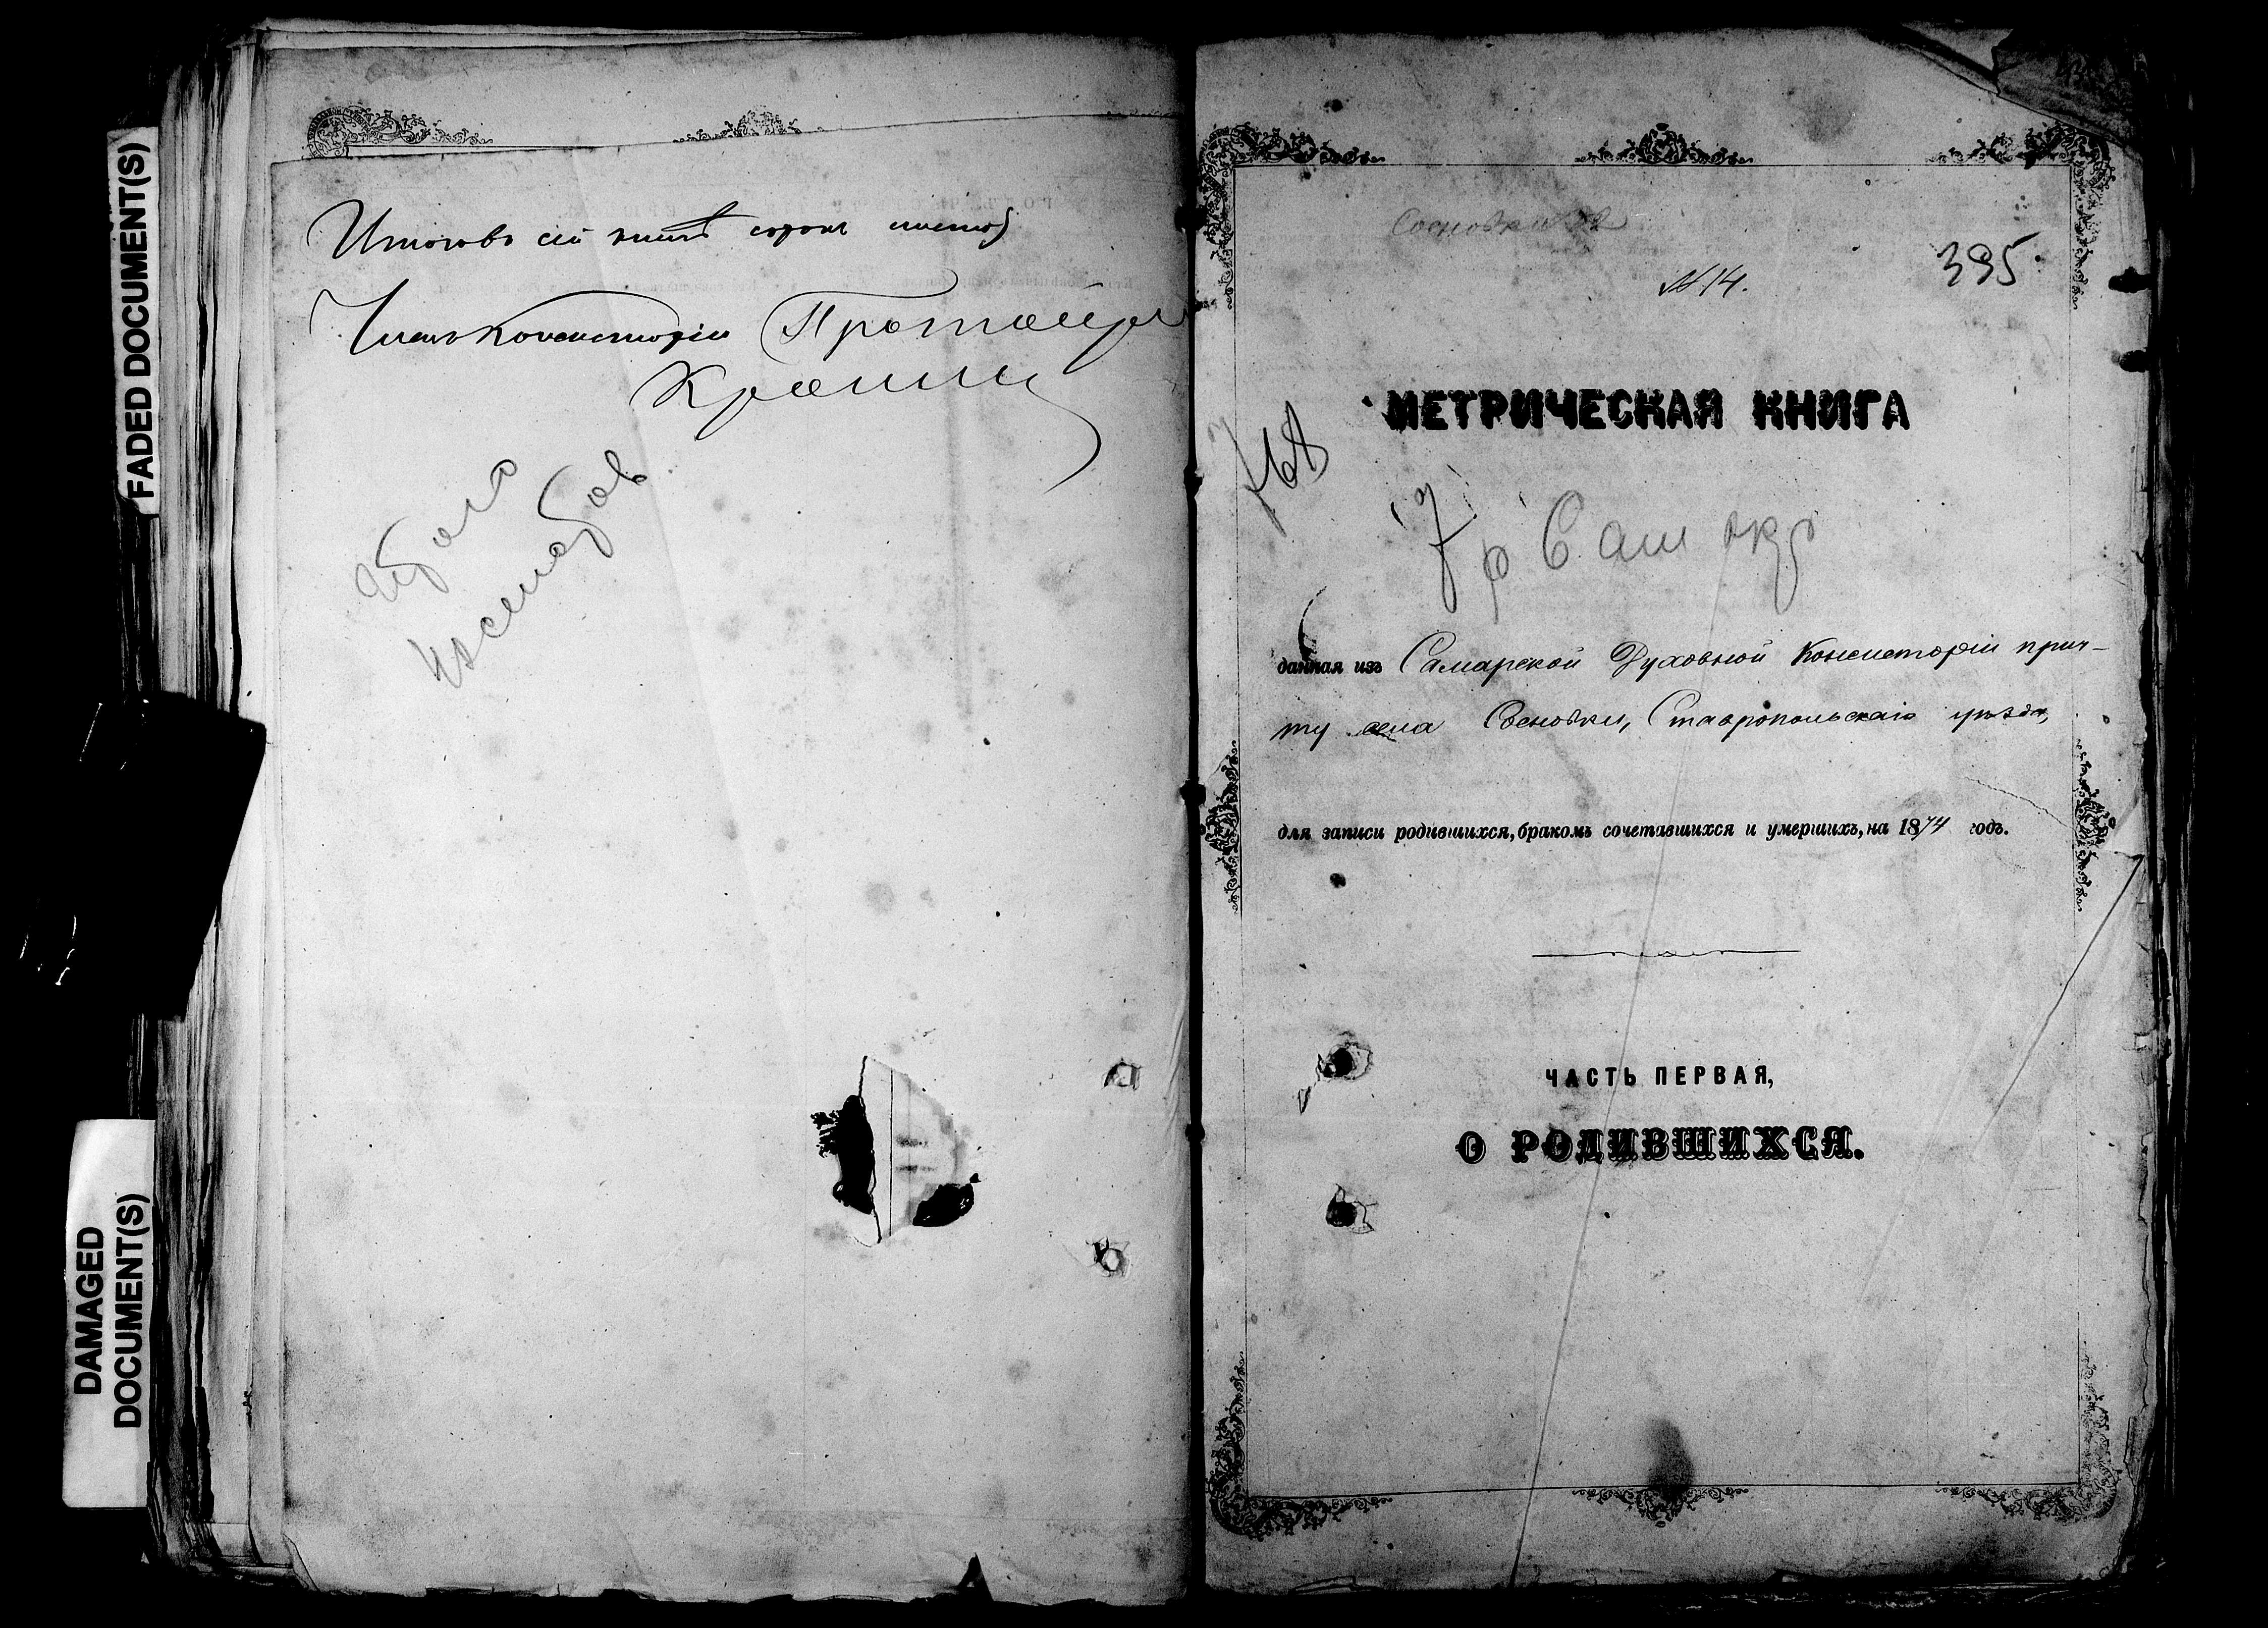 FADED DOCUMENT(S)
DAMAGED
DOCUMENT(S)
Итогово сей книгѣ сорокъ листов
Членъ Консисторіи Протоіерей
Сосновки
395
№ 14.
МЕТРИЧЕСКАЯ КНИГА
данная изъ Самарской Духовной Консисторіи прич-
ту села Сосновки, Ставропольскаго уѣзда,
для записи родившихся, бракомъ сочетавшихся и умершихъ, на 1874 годъ.
ЧАСТЬ ПЕРВАЯ,
О РОДИВШИХСЯ.